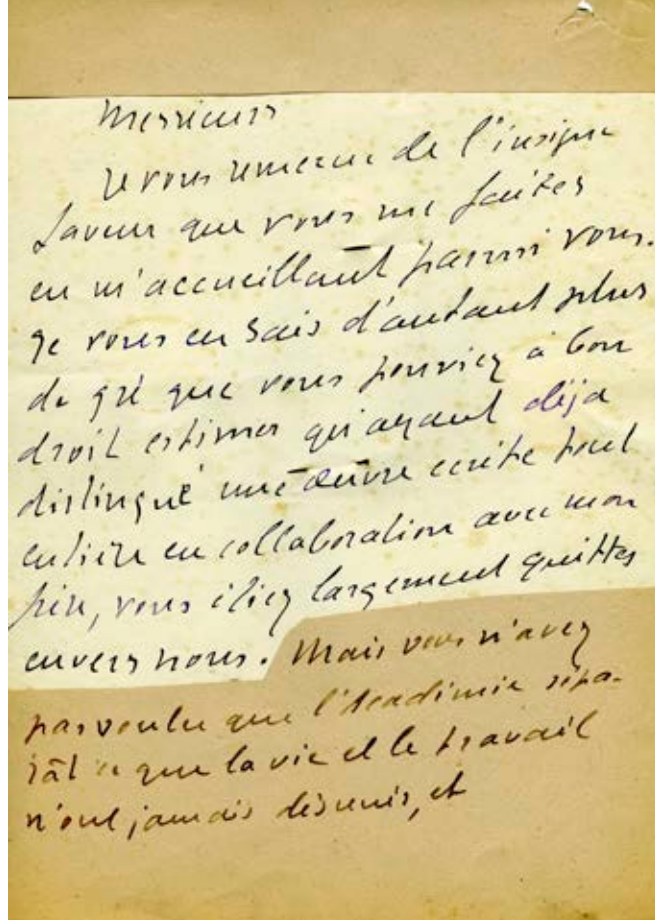 Messieurs
Je vous remercie de l'insigne
faveur que vous me faites
en m'accueillant parmi vous.
Je vous en sais d'autant plus
de gré que vous pouviez à bon
droit estimer qu'ayant déjà
distingué une œuvre écrite tout
entière en collaboration avec mon
frère, vous étiez largement quittes
envers nous. Mais vous n'avez
pas voulu que l'Académie sépa-
rât ce que la vie et le travail
n'ont jamais désunis, et